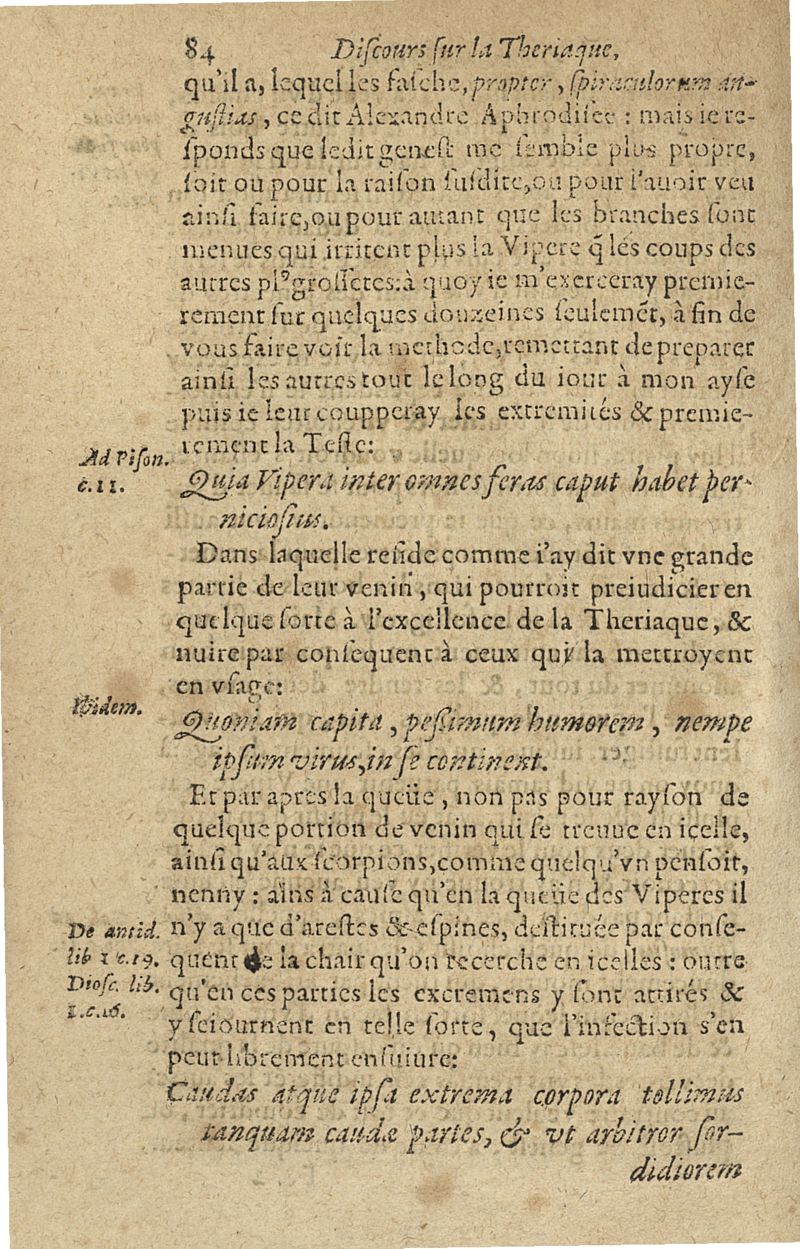 84 Diſcours ſur la Theriaque,
qu'il a, lequel les faſche, propter, ſpiraculorum an-
guſtias, ce dit Alexandre Aphrodiſee : mais ie re-
ſponds que ledit geneſt me ſemble plus propre,
ſoit ou pour la raiſon ſuſdite, ou pour l'auoir veu
ainſi faire, ou pour autant que les branches ſont
menues qui irritent plus la Vipere q̃ les coups des
autres plꝰ groſſetes: à quoy ie m'exerceray premie-
rement ſur quelques douzeines ſeulemẽt, à fin de
vous faire voir la methode, remettant de preparer
ainſi les autres tout le long du iour à mon ayſe
puis ie leur coupperay les extremités & premie-
rement la Teſte:
Ad Piſon.
c. 11.
Quia Vipera inter omnes feras caput habet per-
nicioſius.
Dans laquelle reſide comme i'ay dit vne grande
partie de leur venin, qui pourroit preiudicier en
quelque ſorte à l'excellence de la Theriaque, &
nuire par conſequent à ceux qui la mettroyent
en vſage:
Ibidem.
Quoniam capita, peſſimum humorem, nempe
ipſum virus, in ſe continent.
Et par apres la queüe, non pas pour rayſon de
quelque portion de venin qui ſe treuue en icelle,
ainſi qu'aux ſcorpions, comme quelqu'vn penſoit,
nenny : ains à cauſe qu'en la queüe des Viperes il
n'y a que d'areſtes & eſpines, deſtituée par conſe-
quent de la chair qu'on recerche en icelles : outre
qu'en ces parties les excremens y ſont attirés &
y ſeiournent en telle ſorte, que l'infection s'en
peut librement enſuiure:
De antid.
lib 1 c. 19.
Dioſc. lib.
2. c. 16.
Caudas atque ipſa extrema corpora tollimus
tanquam caudæ partes, & vt arbitror ſor-
didiorem